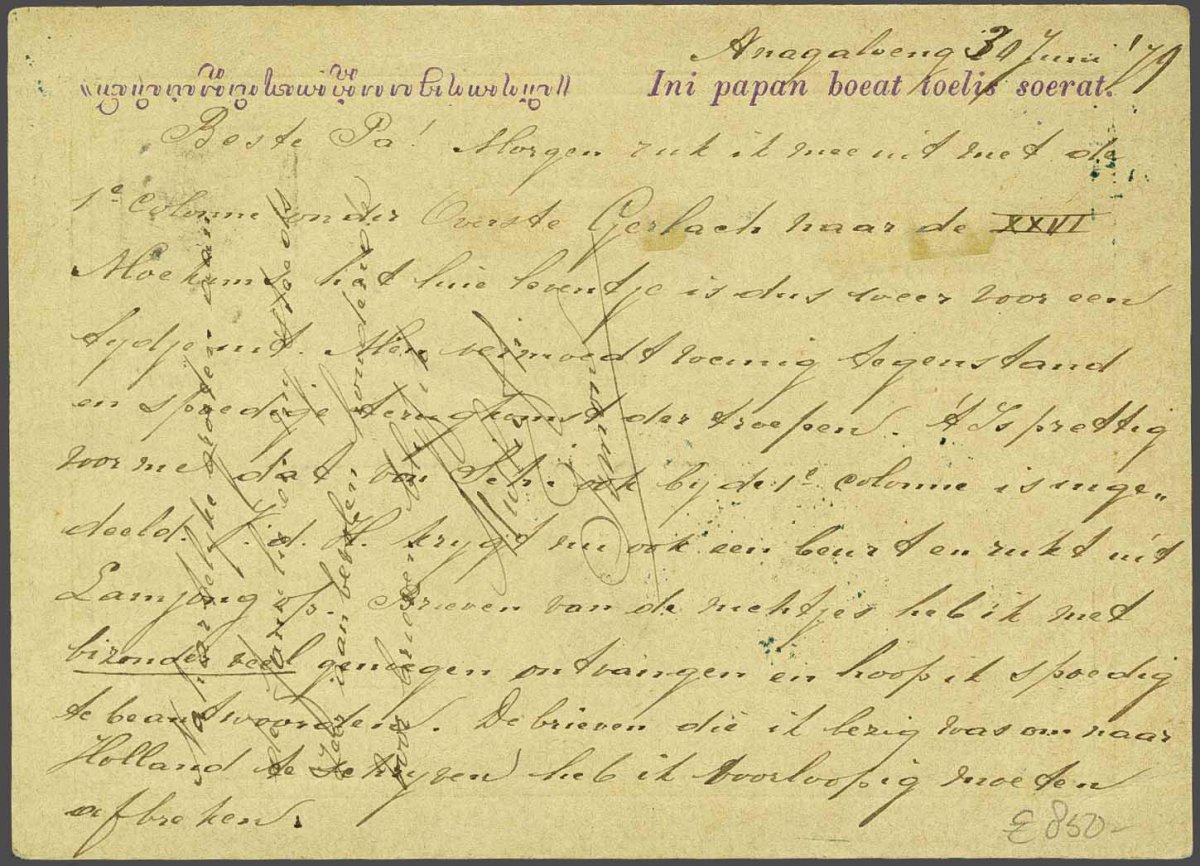 Anagaloeng 30 Juni '79
Ini papan boeat toelis soerat.
Beste Pa! Morgen ruk ik mee uit met de
1e colonne onder Overste Gerlach naar de XXVI
Moekims, het luie leventje is dus weer voor een
tydje uit. Men vermoedt weinig tegenstand
en spoedige terugkomst der troepen. 't Is prettig
voor me dat van Sch. ook by de 1e colonne is inge„
deeld. v. d. H. krygt nu ook een beurt en rukt uit
Lamjong op. Brieven van de nichtjes heb ik met
bizonder veel genoegen ontvangen en hoop ik spoedig
te beantwoorden. De brieven die ik bezig was om naar
Holland te schryven heb ik voorloopig moeten
afbreken.
Na hartelyke groeten van
de familie
aanbevolen houdende
Uw
Symon
£ 850-